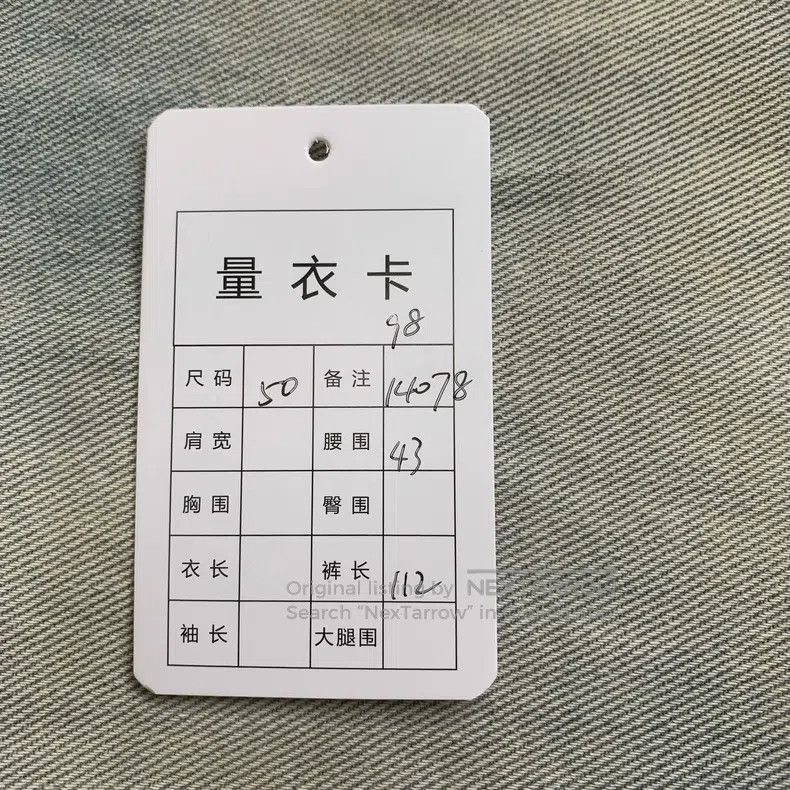 量衣卡
98
尺码 50 备注 14078
肩宽 腰围 43
胸围 臀围
衣长 裤长 112
Original listing by
Search “NexTarrow” in
袖长 大腿围